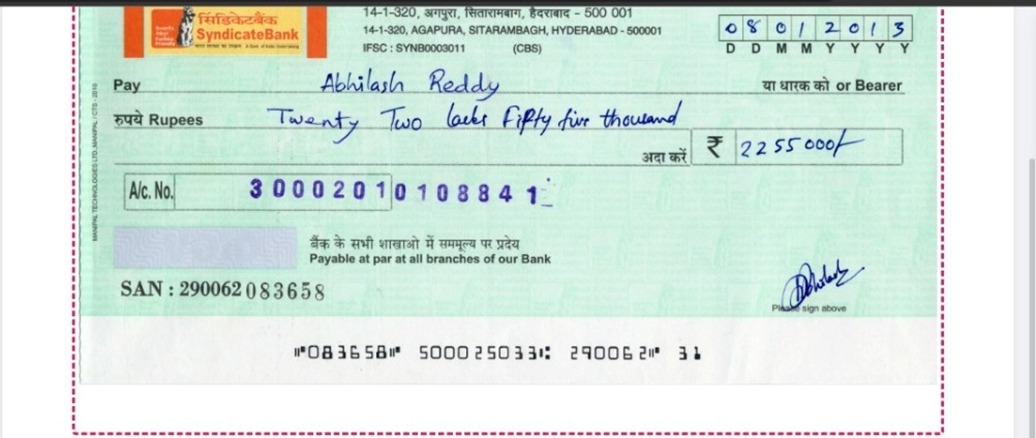 सिंडिकेटबैंक
SyndicateBank
14-1-320, अगपुरा, सितारामबाग, हैदराबाद - 500 001
14-1-320, AGAPURA, SITARAMBAGH, HYDERABAD - 500001
IFSC : SYNB0003011 (CBS)
0 8 0 1 2 0 1 3
D D M M Y Y Y Y
Pay Abhilash Reddy या धारक को or Bearer
रुपये Rupees Twenty Two lacks Fifty five thousand
अदा करें ₹ 2255000/-
A/c. No. 30002010108841
बैंक के सभी शाखाओ में सममूल्य पर प्रदेय
Payable at par at all branches of our Bank
SAN : 290062083658
Abhilash
Please sign above
⑈083658⑈ 500025033⑆ 290062⑈ 31
MANIPAL TECHNOLOGIES LTD., MANIPAL / CTS - 2010